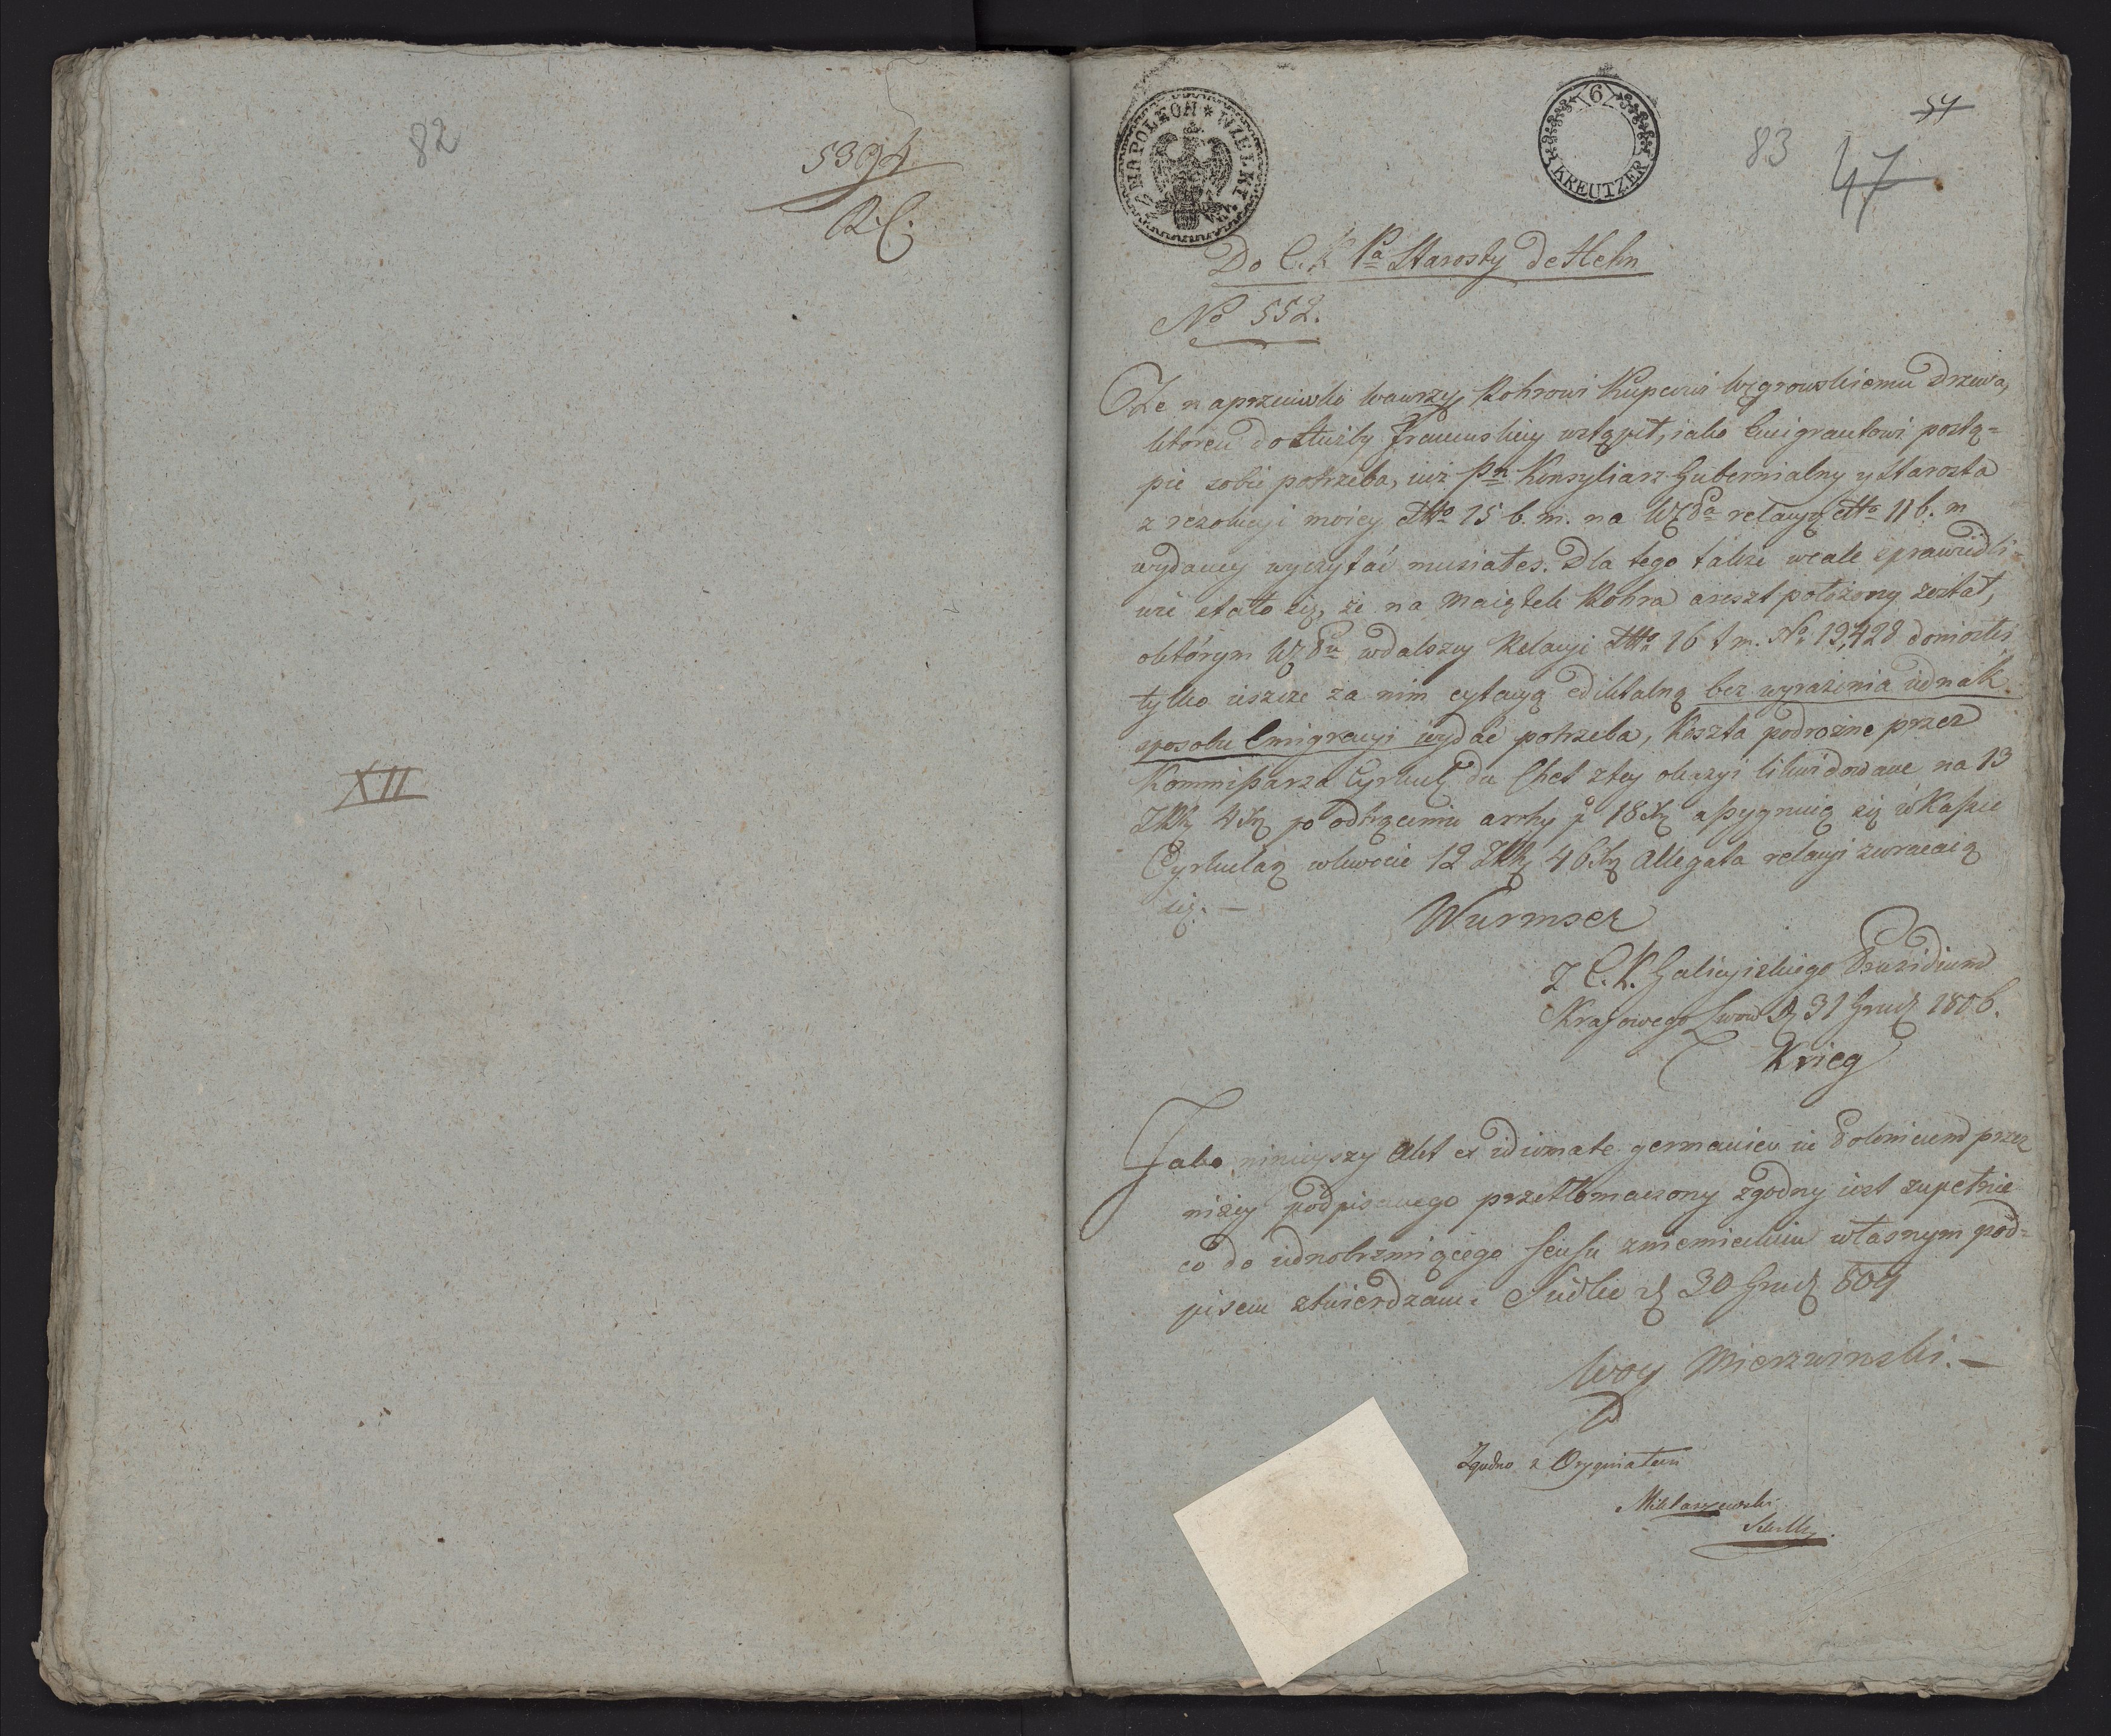 82
5394
XII
NAPOLEON * WIELKI
6
KREUTZER
54
83
47
Do C. K. Pa Starosty de Hehn
No 552.
Że naprzeciwko Wawrzy Rohrowi Kupcowi Węgrowskiemu Drzewa,
który do służby Francuskiey wstąpił, iako Emigrantowi postą=
pić sobie potrzeba, iuż Pn Konsyliarz Gubernialny y Starosta
z rezolucyi moiey dtto 15 b. m. na WPa relacyą dtto 11 b. m
wydaney wyczytać musiałeś. Dla tego także wcale sprawiedli=
wie stało się, że na Maiątek Rohra areszt położony został,
o którym WPn w dalszey Relacyi dtto 16 t m. No 19,428 doniosłeś
tylko ieszcze za nim cytacyą ediktalną bez wyrażenia iednak
sposobu Emigracyi wydać potrzeba, Koszta podrożne przez
Kommissarza Cyrkuł du Chet z tey okazyi likwidowane na 13
ZRr 4 xr po odtrąceniu arrhy p 18 xr assygnuią się w Kassie
Cyrkular w kwocie 12 ZRr 46 xr Allegata relacyi zwracaią
się. —
Wurmser
Z C. K. Galicyiskiego Prezidium
Kraiowego Lwow d 31 Grud 1806.
Krieg
Jako ninieyszy Akt ex idiomate germanico in Polonicum przez
niżey podpisanego przetłomaczony zgodny iest zupełnie
co do iednobrzmiącego sensu z niemieckim własnym pod=
pisem stwierdzam. Siedlce d 30 Grud 809
Woy Mierzwinski. —
Zgodno z Oryginałem
Miklaszewski